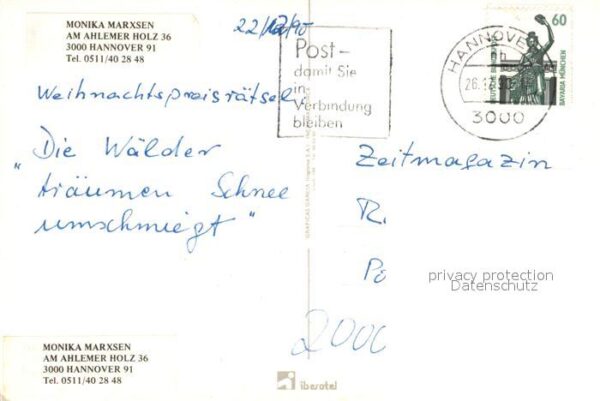 MONIKA MARXSEN
AM AHLEMER HOLZ 36
3000 HANNOVER 91
Tel. 0511/40 28 48
22/12/90
Weihnachtspreisrätsel:
"Die Wälder
träumen Schnee
umschmiegt"
Post-
damit Sie
in
Verbindung
bleiben
HANNOVE
3000
60
BAVARIA MÜNCHEN
Zeitmagazin
R.
Po
2000
privacy protection
Datenschutz
MONIKA MARXSEN
AM AHLEMER HOLZ 36
3000 HANNOVER 91
Tel. 0511/40 28 48
iberotel